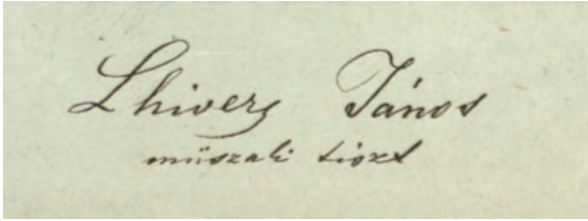 Lhiverz János
műszaki tiszt